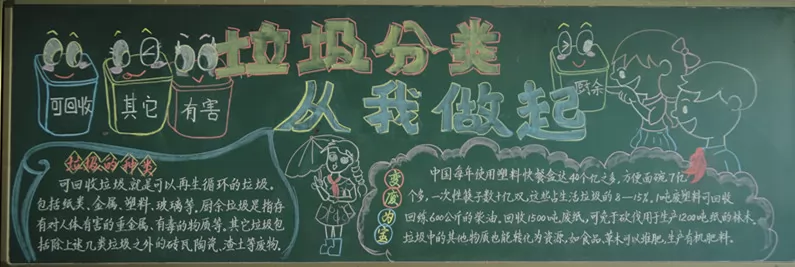 垃圾分类
从我做起
可回收
其它
有害
厨余
垃圾的种类
可回收垃圾就是可以再生循环的垃圾。
包括纸类、金属、塑料、玻璃等。厨余垃圾是指存
有对人体有害的重金属、有毒的物质等。其它垃圾包
括除上述几类垃圾之外的砖瓦陶瓷、渣土等废物。
变废为宝
中国每年使用塑料快餐盒达40个亿之多,方便面碗7亿
个多,一次性筷子数十亿双,这些占生活垃圾的8—15%。1吨废塑料可回收
回炼600公斤的柴油。回收1500吨废纸,可免于砍伐用于生产1200吨纸的林木。
垃圾中的其他物质也能转化为资源,如食品、草木可以堆肥,生产有机肥料。